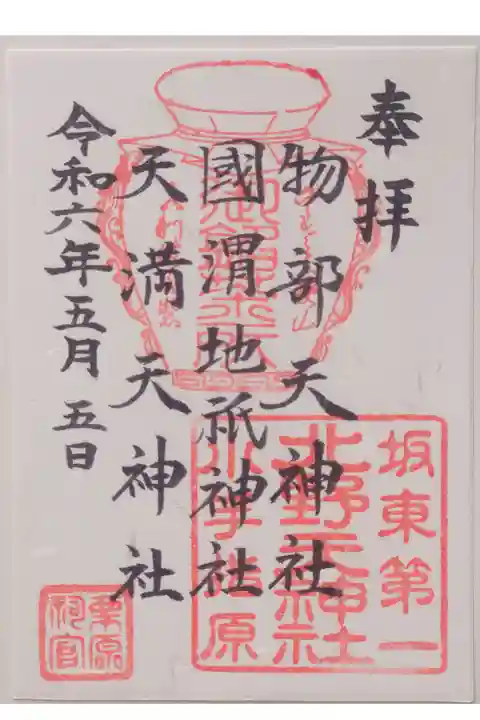 奉拝
物部天神社
國渭地祇神社
天満天神社
令和六年五月五日
坂東第一
北野天神社
小手指原
栗原祠官